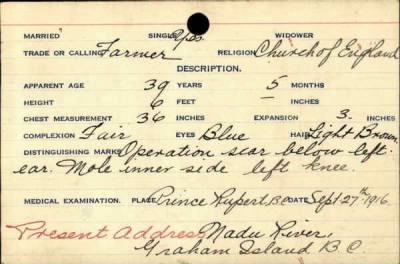 MARRIED SINGLE Yes. WIDOWER
TRADE OR CALLING Farmer RELIGION Church of England
DESCRIPTION.
APPARENT AGE 39 YEARS 5 MONTHS
HEIGHT 6 FEET — INCHES
CHEST MEASUREMENT 36 INCHES EXPANSION 3. INCHES
COMPLEXION Fair EYES Blue HAIR Light Brown
DISTINGUISHING MARKS Operation scar below left
ear. Mole inner side left knee.
MEDICAL EXAMINATION. PLACE Prince Rupert, B.C. DATE Sept 27th 1916.
Present Address Nadu River,
Graham Island B.C.